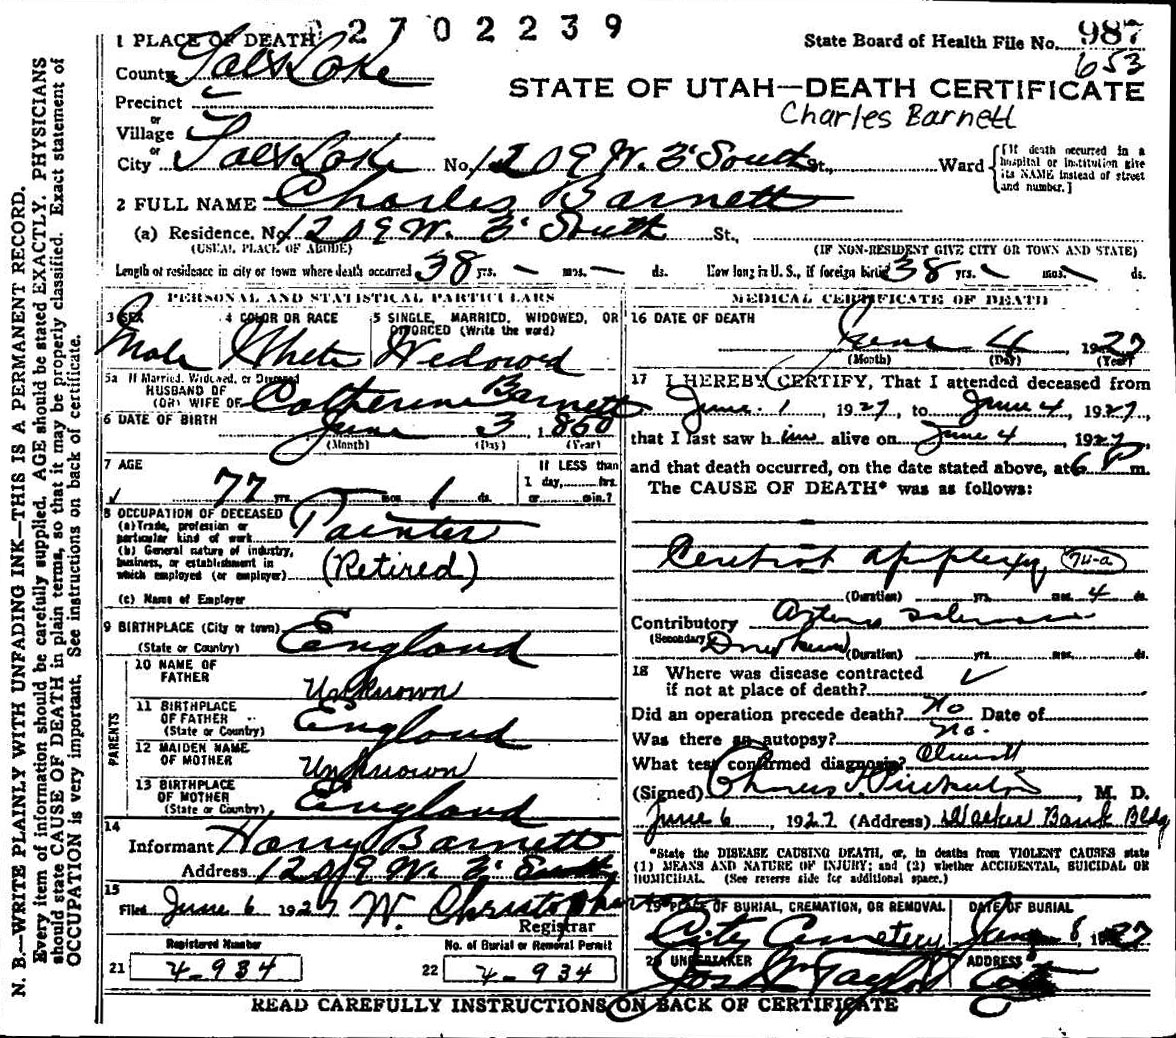 2702239
1 PLACE OF DEATH
State Board of Health File No. 987
653
County Salt Lake
STATE OF UTAH—DEATH CERTIFICATE
Charles Barnett
Precinct
or
Village
or
City Salt Lake No. 1209 W. 3' South St., Ward
[If death occurred in a hospital or institution give its NAME instead of street and number.]
2 FULL NAME Charles Barnett
(a) Residence. No. 1209 W. 3' South St.,
(USUAL PLACE OF ABODE) (IF NON-RESIDENT GIVE CITY OR TOWN AND STATE)
Length of residence in city or town where death occurred 38 yrs. — mos. — ds. How long in U. S., if foreign birth? 38 yrs. — mos. — ds.
PERSONAL AND STATISTICAL PARTICULARS
3 SEX 4 COLOR OR RACE 5 SINGLE, MARRIED, WIDOWED, OR DIVORCED (Write the word)
Male White Widowed
5a If Married, Widowed, or Divorced
HUSBAND OF
(OR) WIFE OF Catherine Barnett
6 DATE OF BIRTH June 3 1850
(Month) (Day) (Year)
7 AGE If LESS than
1 day, hrs.
77 yrs. mos. 1 ds. or min.?
8 OCCUPATION OF DECEASED
(a) Trade, profession or
particular kind of work Painter
(b) General nature of industry,
business, or establishment in
which employed (or employer) (Retired)
(c) Name of Employer
9 BIRTHPLACE (City or town)
(State or Country) England
PARENTS
10 NAME OF
FATHER Unknown
11 BIRTHPLACE
OF FATHER
(State or Country) England
12 MAIDEN NAME
OF MOTHER Unknown
13 BIRTHPLACE
OF MOTHER
(State or Country) England
14
Informant Harry Barnett
Address 1209 W. 3' South
15
Filed June 6 1927 W. Christopherson
Registrar
Registered Number No. of Burial or Removal Permit
21 4-934 22 4-934
MEDICAL CERTIFICATE OF DEATH
16 DATE OF DEATH
June 4 1927
(Month) (Day) (Year)
17 I HEREBY CERTIFY, That I attended deceased from
June 1, 1927, to June 4, 1927,
that I last saw him alive on June 4, 1927,
and that death occurred, on the date stated above, at 6 P m.
The CAUSE OF DEATH* was as follows:
Cerebral apoplexy 74-a
(Duration) yrs. mos. 4 ds.
Contributory Arterio sclerosis
(Secondary) (Duration) yrs. mos. ds.
18 Where was disease contracted
if not at place of death?
Did an operation precede death? No Date of
Was there an autopsy? No.
What test confirmed diagnosis?
(Signed) M. D.
June 6, 1927 (Address) Walker Bank Bldg
*State the DISEASE CAUSING DEATH, or, in deaths from VIOLENT CAUSES state
(1) MEANS AND NATURE OF INJURY; and (2) whether ACCIDENTAL, SUICIDAL OR
HOMICIDAL. (See reverse side for additional space.)
19 PLACE OF BURIAL, CREMATION, OR REMOVAL DATE OF BURIAL
City Cemetery June 6, 1927
20 UNDERTAKER ADDRESS
Jos Wm Taylor
READ CAREFULLY INSTRUCTIONS ON BACK OF CERTIFICATE
N. B.—WRITE PLAINLY WITH UNFADING INK—THIS IS A PERMANENT RECORD.
Every item of information should be carefully supplied. AGE should be stated EXACTLY. PHYSICIANS
should state CAUSE OF DEATH in plain terms, so that it may be properly classified. Exact statement of
OCCUPATION is very important. See instructions on back of certificate.